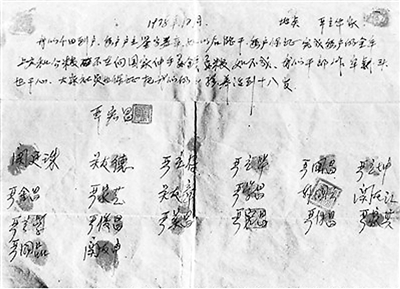 1978年12月 地点 严立华家
我们分田到户每户户主签字盖章如以后能干每户保证完成每户的全年
上交和公粮不在向国家伸手要钱要粮如不成我们干部作牢杀头
也干心大家社员也保证把我们的小孩养活到十八岁
严宏昌
关廷珠 关友德 严立符 严立华 严国昌 严立坤
严金昌 严家芝 关友章 严学昌 韩国云 关友江
严立学 严俊昌 严美昌 严付昌 严家其
严国品 关友申